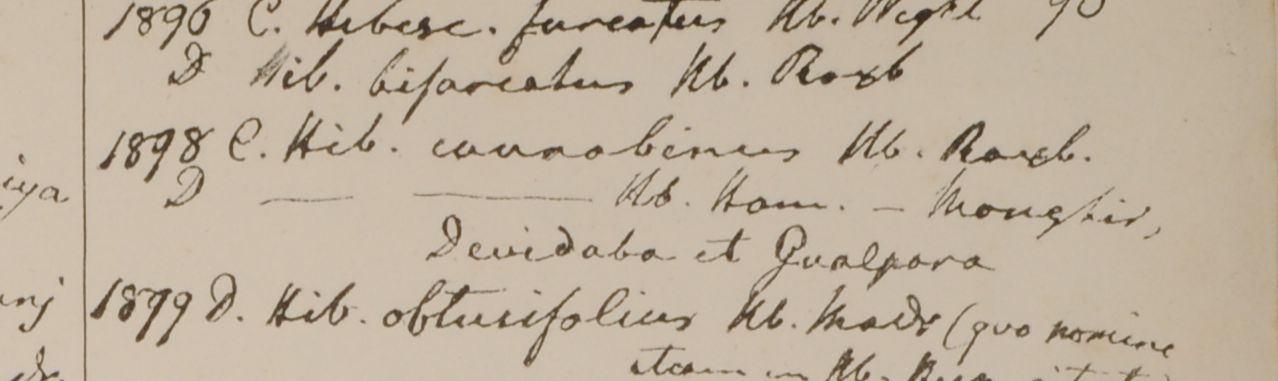 1896 C. Hibisc. furcatus Hb. Wight
D Hib. bifurcatus Hb. Roxb
1898 C. Hib. cannabinus Hb. Roxb.
D — — Hb. Ham. – Monghir,
Devidaba et Gualpara
1899 D. Hib. obtusifolius Hb. Madr (quo nomine